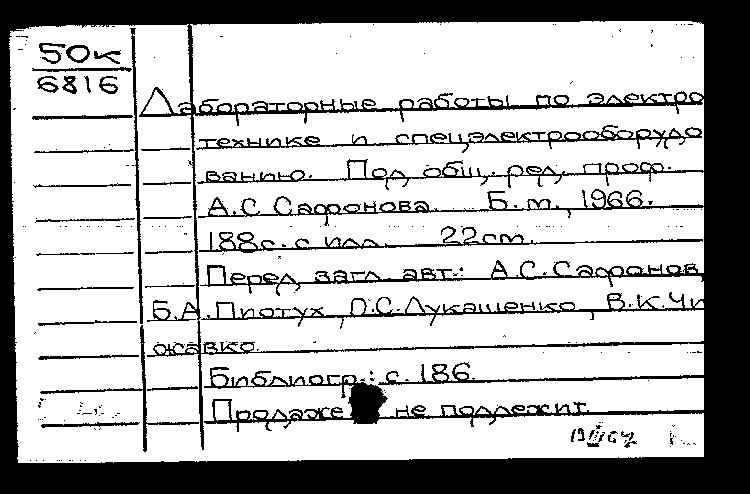 50к
6816
Лабораторные работы по электро
технике и спецэлектрооборудо
ванию. Под общ. ред. проф.
А.С Сафонова. Б.м., 1966.
188с. с илл. 22см.
Перед загл. авт.: А.С.Сафонов,
Б.А.Пиотух, О.С.Лукашенко, В.К.Чи
жавко.
Библиогр.: с. 186.
Продаже не подлежит